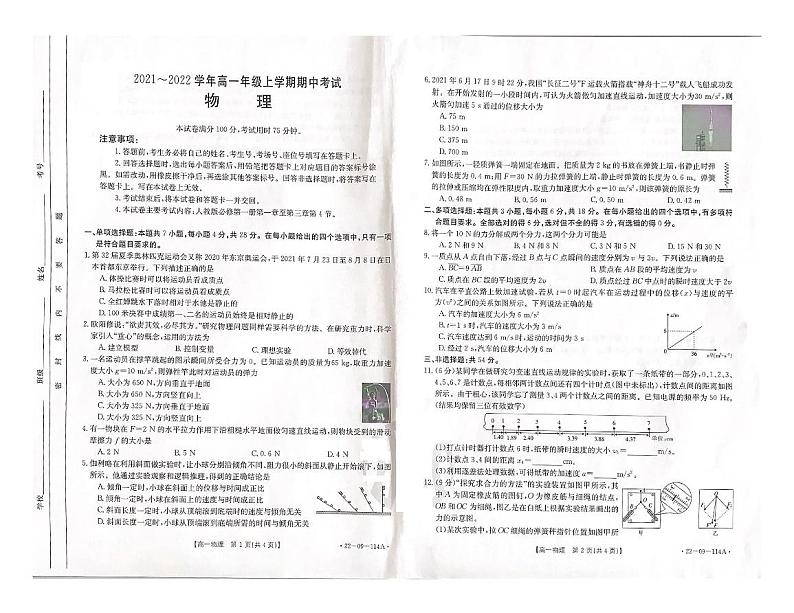 2021～2022学年高一年级上学期期中考试
物 理
本试卷满分100分,考试用时75分钟。
注意事项:
1.答题前,考生务必将自己的姓名、考生号、考场号、座位号填写在答题卡上。
2.回答选择题时,选出每小题答案后,用铅笔把答题卡上对应题目的答案标号涂
黑。如需改动,用橡皮擦干净后,再选涂其他答案标号。回答非选择题时,将答案写在
答题卡上。写在本试卷上无效。
3.考试结束后,将本试卷和答题卡一并交回。
4.本试卷主要考试内容:人教版必修第一册第一章至第三章第4节。
一、单项选择题:本题共7小题,每小题4分,共28分。在每小题给出的四个选项中,只有一项
是符合题目要求的。
1.第32届夏季奥林匹克运动会又称2020年东京奥运会,于2021年7月23日至8月8日在日
本首都东京举行。下列描述正确的是
A.体操比赛时可以将运动员看成质点
B.马拉松比赛时可以将运动员看成质点
C.全红婵跳水下落时相对于水池是静止的
D.100米决赛中成绩第一、二名的运动员始终是相对静止的
2.欧阳修说:“欲责其效,必尽其方。”研究物理问题同样需要科学的方法。在研究重力时,科学
家引入“重心”的概念,运用的方法为
A.建立模型 B.控制变量 C.理想实验 D.等效替代
3.一名运动员在撑竿跳起的图示瞬间所受合力为0。已知运动员的质量为65 kg,取重力加速
度大小g=10 m/s²,则弹性竿此时对运动员的弹力
A.大小为650 N,方向垂直于地面
B.大小为650 N,方向竖直向上
C.大小为325 N,方向垂直于地面
D.大小为325 N,方向竖直向上
4.有一物块在F=2 N的水平拉力作用下沿粗糙水平地面做匀速直线运动,则物块受到的滑动
摩擦力f的大小是
A.2 N B.5 N C.0.6 N D.0
5.伽利略在利用斜面做实验时,让小球分别沿倾角不同、阻力很小的斜面从静止开始滚下,如图
所示。他通过实验观察和逻辑推理,得到的正确结论是
A.倾角一定时,小球在斜面上的位移与时间成正比
B.倾角一定时,小球在斜面上的速度与时间成正比
C.斜面长度一定时,小球从顶端滚到底端时的速度与倾角无关
D.斜面长度一定时,小球从顶端滚到底端所需的时间与倾角无关
【高一物理 第1页(共4页)】
·22-09-114A·
考号
姓名
班级
学校
密 封 线 内 不 要 答 题
6.2021年6月17日9时22分,我国“长征二号”F运载火箭搭载“神舟十二号”载人飞船成功发
射。在开始发射的一小段时间内,可认为火箭做匀加速直线运动,加速度大小为30 m/s²,则
火箭匀加速5 s通过的位移大小为
A.75 m
B.150 m
C.375 m
D.700 m
7.如图所示,一轻质弹簧一端固定在地面。把质量为2 kg的书放在弹簧上端,书静止时弹
簧的长度为0.4 m;用F=30 N的力竖直向上拉弹簧,静止时弹簧的长度为0.6 m。弹簧
的拉伸或压缩均在弹性限度内,取重力加速度大小g=10 m/s²,则该弹簧的原长为
A.0.48 m B.0.56 m C.0.50 m D.0.42 m
二、多项选择题:本题共3小题,每小题6分,共18分。在每小题给出的四个选项中,有多项符
合题目要求。全部选对的得6分,选对但不全的得3分,有选错的得0分。
8.将一个10 N的力分解成两个力,这两个分力可能是
A.2 N和9 N B.4 N和8 N C.3 N和5 N D.15 N和20 N
9.一质点从A点自由下落,经过B点与C点瞬间的速度分别为v与3v。下列说法正确的是
A.BC=9AB B.质点在AB段的平均速度为v
C.质点在BC段的平均速度为2v D.质点在BC中点时的瞬时速度大于2v
10.汽车在平直公路上做加速试验。若从t=0时起汽车在运动过程中的位移(x)与速度的平
方(v²)之间的关系如图所示,下列说法正确的是
A.汽车的加速度大小为6 m/s²
B.t=1 s时,汽车的速度大小为3 m/s
C.汽车的速度大小为9 m/s时,运动的时间为3 s
D.经过2 s,汽车的位移大小为6 m
x/m
6
0
36
v²/(m²·s⁻²)
三、非选择题:共54分。
11.(6分)某同学在做研究匀变速直线运动规律的实验时,获取了一条纸带的一部分,0、1、2、3、
4、5、6、7是计数点,每相邻两计数点间还有四个计时点(图中未标出),计数点间的距离如图
所示。由于粗心,该同学忘了测量3、4两个计数点之间的距离。已知电源的频率为50 Hz。
(结果均保留三位有效数字)
0 1 2 3 4 5 6 7
1.40 1.89 2.40 3.39 3.88 4.37 单位:cm
(1)打点计时器打计数点6时,纸带的瞬时速度的大小v₆=______m/s。
(2)计数点3、4间的距离x₄=______cm。
(3)利用逐差法处理数据,可得纸带的加速度a=______m/s²。
12.(9分)“探究求合力的方法”的实验装置如图甲所示,其
中A为固定橡皮筋的图钉,O为橡皮筋与细绳的结点,
OB和OC为细绳,图乙是在白纸上根据实验结果画出的
力的示意图。
(1)某次实验中,拉OC细绳的弹簧秤指针位置如图甲所
甲 乙
【高一物理 第2页(共4页)】
·22-09-114A·